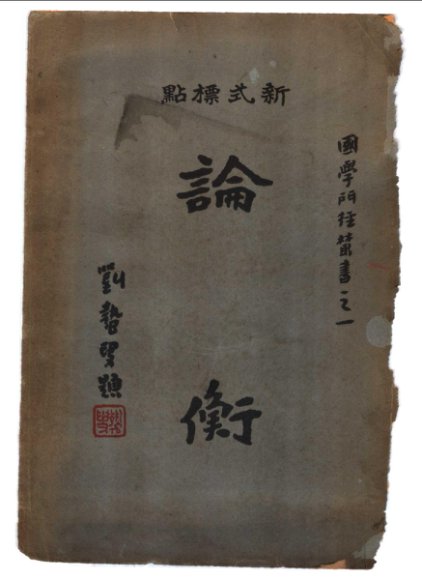 新式標點
國學門徑叢書之一
論衡
劉蟄叟題